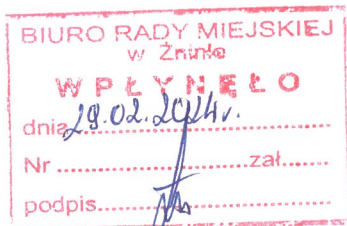 BIURO RADY MIEJSKIEJ
w Żninie
WPŁYNĘŁO
dnia 29.02.2024r.
Nr ........................ zał.......
podpis..............................